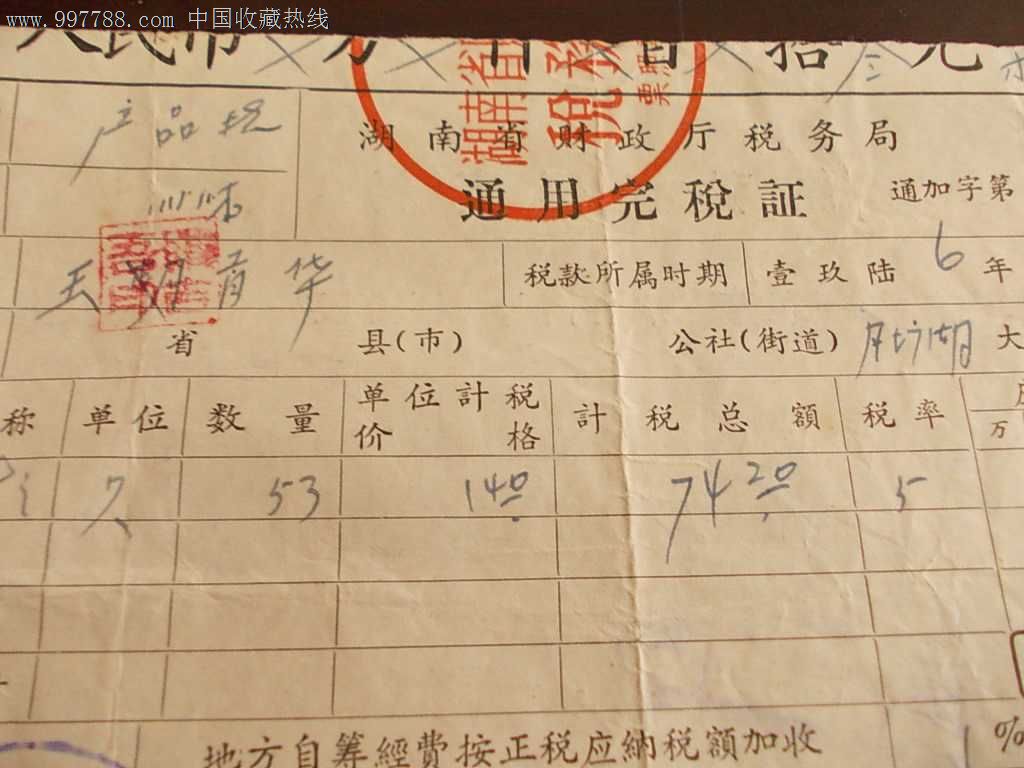 www.997788.com 中国收藏热线
人民币 万 仟 佰 拾 元
湖南省
税务
票照
产品税
湖南省财政厅税务局
通用完税証
通加字第
税款所属时期 壹玖陆6年
华
省 县(市) 公社(街道) 月坊湖 大
称 单位 数量 单位計税价格 計税总额 税率
万
53 1.40 74.20 5
地方自筹經費按正税应納税額加收 1%